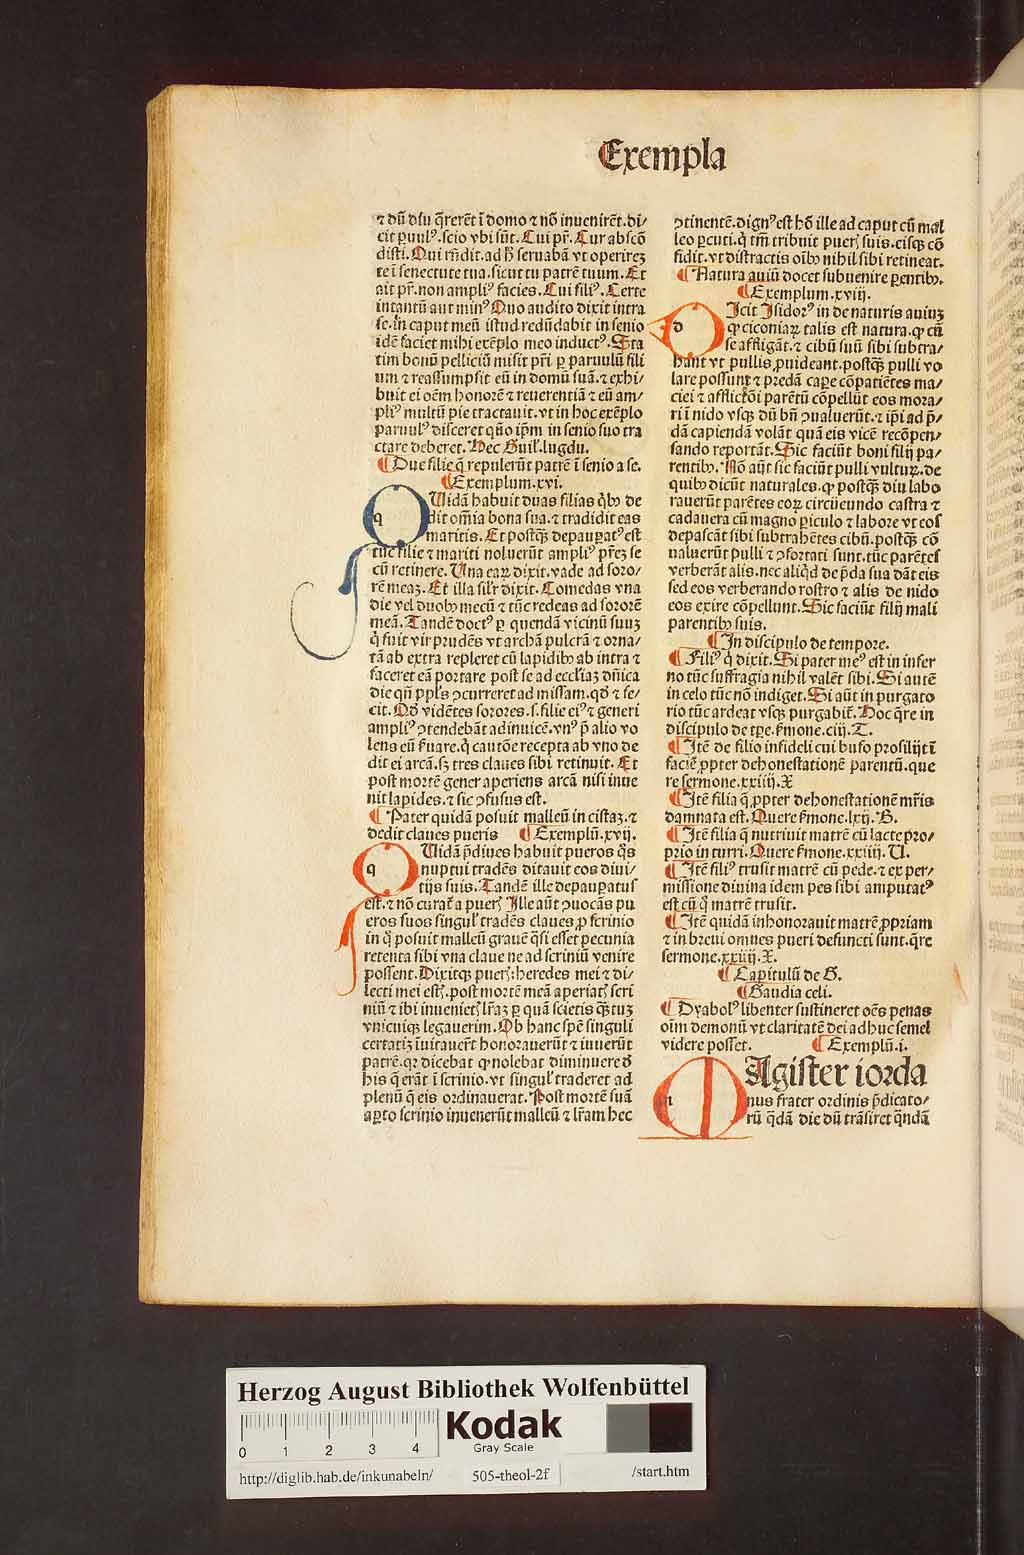 Exempla
⁊ dū diu q̄rerēt ī domo ⁊ nō inuenirēt. di/
cit ꝑuulꝰ. scio vbi sūt. Cui pr̄. Cur abscō
disti. Qui rn̄dit. ad h̄ seruabā vt operirez
te ī senectute tua. sicut tu patrē tuum. Et
ait pr̄. non ampliꝰ facies. Cui filiꝰ. Certe
intantū aut minꝰ Quo audito dixit intra
se. in caput meū istud redūdabit in senio
idē faciet mihi exēplo meo inductꝰ. Sta
tim bonū pelliciū misit pr̄i ꝑ paruulū fili
um ⁊ reassumpsit eū in domū suā. ⁊ exhi/
buit ei oēm honorē ⁊ reuerentiā ⁊ eū am/
pliꝰ multū pie tractauit. vt in hoc exēplo
paruulꝰ disceret qūo ip̄m in senio suo tra
ctare deberet. Hec Guil. lugdu.
¶ Due filie q̄ repulerūt patrē ī senio a se.
¶ Exemplum. xvi.
q Uidā habuit duas filias q̄bꝫ de
dit om̄ia bona sua. ⁊ tradidit eas
maritis. Et postq̄ꝫ depauꝑatꝰ est
tūc filie ⁊ mariti noluerūt ampliꝰ pr̄eꝫ se
cū retinere. Una eaꝝ dixit. vade ad soro/
rē meaꝫ. Et illa silr̄ dixit. Comedas vna
die vel duobꝫ mecū ⁊ tūc redeas ad sororē
meā. Tandē doctꝰ ꝑ quendā vicinū suuꝫ
q̄ fuit vir prudēs vt archā pulcrā ⁊ orna/
tā ab extra repleret cū lapidibꝫ ab intra ⁊
faceret eā portare post se ad eccl̄iaꝫ dn̄ica
die qn̄ ppl̄s ꝯcurreret ad missam. qd̄ ⁊ fe/
cit. Qd̄ vidētes sorores. s. filie eiꝰ ⁊ generi
ampliꝰ ꝯtendebāt adinuicē. vnꝰ p̄ alio vo
lens eū s̄uare. q̄ cautōe recepta ab vno de
dit ei arcā. sꝫ tres claues sibi retinuit. Et
post mortē gener aperiens arcā nisi inue
nit lapides. ⁊ sic ꝯfusus est.
¶ Pater quidā posuit malleū in cistaꝫ. ⁊
dedit claues pueris ¶ Exemplū. xvij.
q Uidā p̄diues habuit pueros q̄s
nuptui tradēs ditauit eos diui/
tijs suis. Tandē ille depauꝑatus
est. ⁊ nō curaꝉ a pueꝝ Ille aūt ꝯuocās pu
eros suos singul̕ tradēs claues ꝓ scrinio
in q̄ posuit malleū grauē q̄si esset pecunia
retenta sibi vna claue ne ad scriniū venire
possent. Dixitqꝫ pueꝝ: heredes mei ⁊ di/
lecti mei estꝭ. post mortē meā aperiatꝭ scri
niū ⁊ ibi inuenietꝭ lr̄aꝫ ꝑ quā scietis q̄ꝫtuꝫ
vnicuiqꝫ legauerim. Ob hanc spē singuli
certatiꝫ īuitauer̄t honorauerūt ⁊ iuuerūt
patrē. qꝛ dicebat ꝙ nolebat diminuere d̄
his q̄ erāt ī scrinio. vt singul̕ traderet ad
plenū q̄ eis ordinauerat. Post mortē suā
aꝑto scrinio inuenerūt malleū ⁊ lr̄am hec
ꝯtinentē. dignꝰ est hō ille ad caput cū mal
leo ꝑcuti. q̄ tm̄ tribuit pueꝝ suis. eisqꝫ cō
fidit. vt distractis oībꝫ nihil sibi retineat.
¶ Natura auiū docet subuenire parentibꝫ.
¶ Exemplum. xviij.
d Icit Isidorꝰ in de naturis auiuꝫ
ꝙ ciconiaꝝ talis est natura. ꝙ cū
se affligāt. ⁊ cibū suū sibi subtra/
hant vt pullis ꝓuideant. postq̄ꝫ pulli vo
lare possunt ⁊ predā caꝑe cōpatiētes ma/
ciei ⁊ afflictōi parētū cōpellūt eos mora/
ri ī nido vsqꝫ dū bn̄ ꝯualuerūt. ⁊ ip̄i ad p̄/
dā capiendā volāt quā eis vicē recōpen/
sando reportāt. Sic faciūt boni filij pa/
rentibꝫ. Nō aūt sic faciūt pulli vulturꝝ. de
quibꝫ dicūt naturales. ꝙ postq̄ꝫ diu labo
rauerūt parētes eoꝝ circūeundo castra ⁊
cadauera cū magno ꝑiculo ⁊ labore vt eos
depascāt sibi subtrahētes cibū. postq̄ꝫ cō
ualuerūt pulli ⁊ ꝯfortati sunt. tūc parētes
verberāt alis. nec aliqd̄ de p̄da sua dāt eis
sed eos verberando rostro ⁊ alis de nido
eos exire cōpellunt. Sic faciūt filij mali
parentibꝫ suis.
¶ In discipulo de tempore.
¶ Filiꝰ q̄ dixit. Si pater meꝰ est in infer
no tūc suffragia nihil valēt sibi. Si autē
in celo tūc nō indiget. Si aūt in purgato
rio tūc ardeat vsqꝫ purgabiꝉ. Hoc q̄re in
discipulo de tp̄e. s̄mone. ciij. T.
¶ Itē de filio infideli cui bufo prosilijt ī
faciē ꝓpter dehonestationē parentū. que
re sermone. xxiiij. X
¶ Itē filia q̄ ꝓpter dehonestationē mr̄is
damnata est. Quere s̄mone. lxij. B.
¶ Itē filia q̄ nutriuit matrē cū lacte pro/
prio in turri. Quere s̄mone. xxiiij. U.
¶ Itē filiꝰ trusit matrē cū pede. ⁊ ex per/
missione diuina idem pes sibi amputatꝰ
est cū q̄ matrē trusit.
¶ Itē quidā inhonorauit matrē ꝓpriam
⁊ in breui omnes pueri defuncti sunt. q̄re
sermone. xxiiij. X.
¶ Capitulū de G.
¶ Gaudia celi.
¶ Dyabolꝰ libenter sustineret oēs penas
oīm demonū vt claritatē dei adhuc semel
videre posset. ¶ Exemplū. i.
m Agister iorda
nus frater ordinis p̄dicato/
rū q̄dā die dū trāsiret q̄ndā
Herzog August Bibliothek Wolfenbüttel
0 1 2 3 4
Kodak
Gray Scale
http://diglib.hab.de/inkunabeln/ 505-theol-2f /start.htm